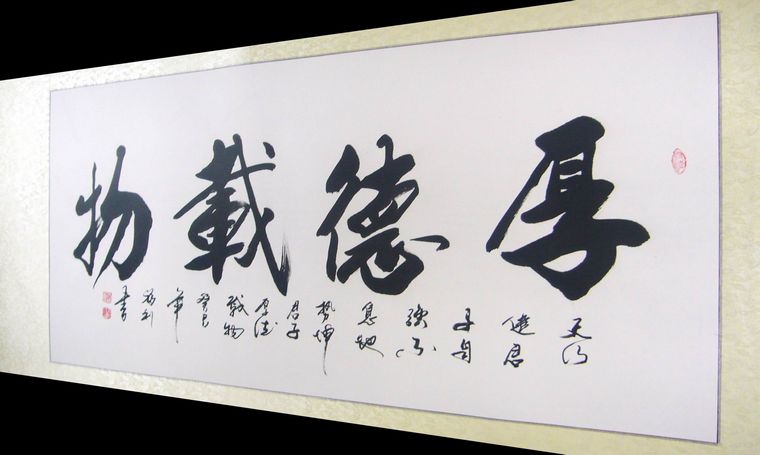 厚德載物
天行
健君
子自
強不
息地
勢坤
君子
厚德
載物
癸巳